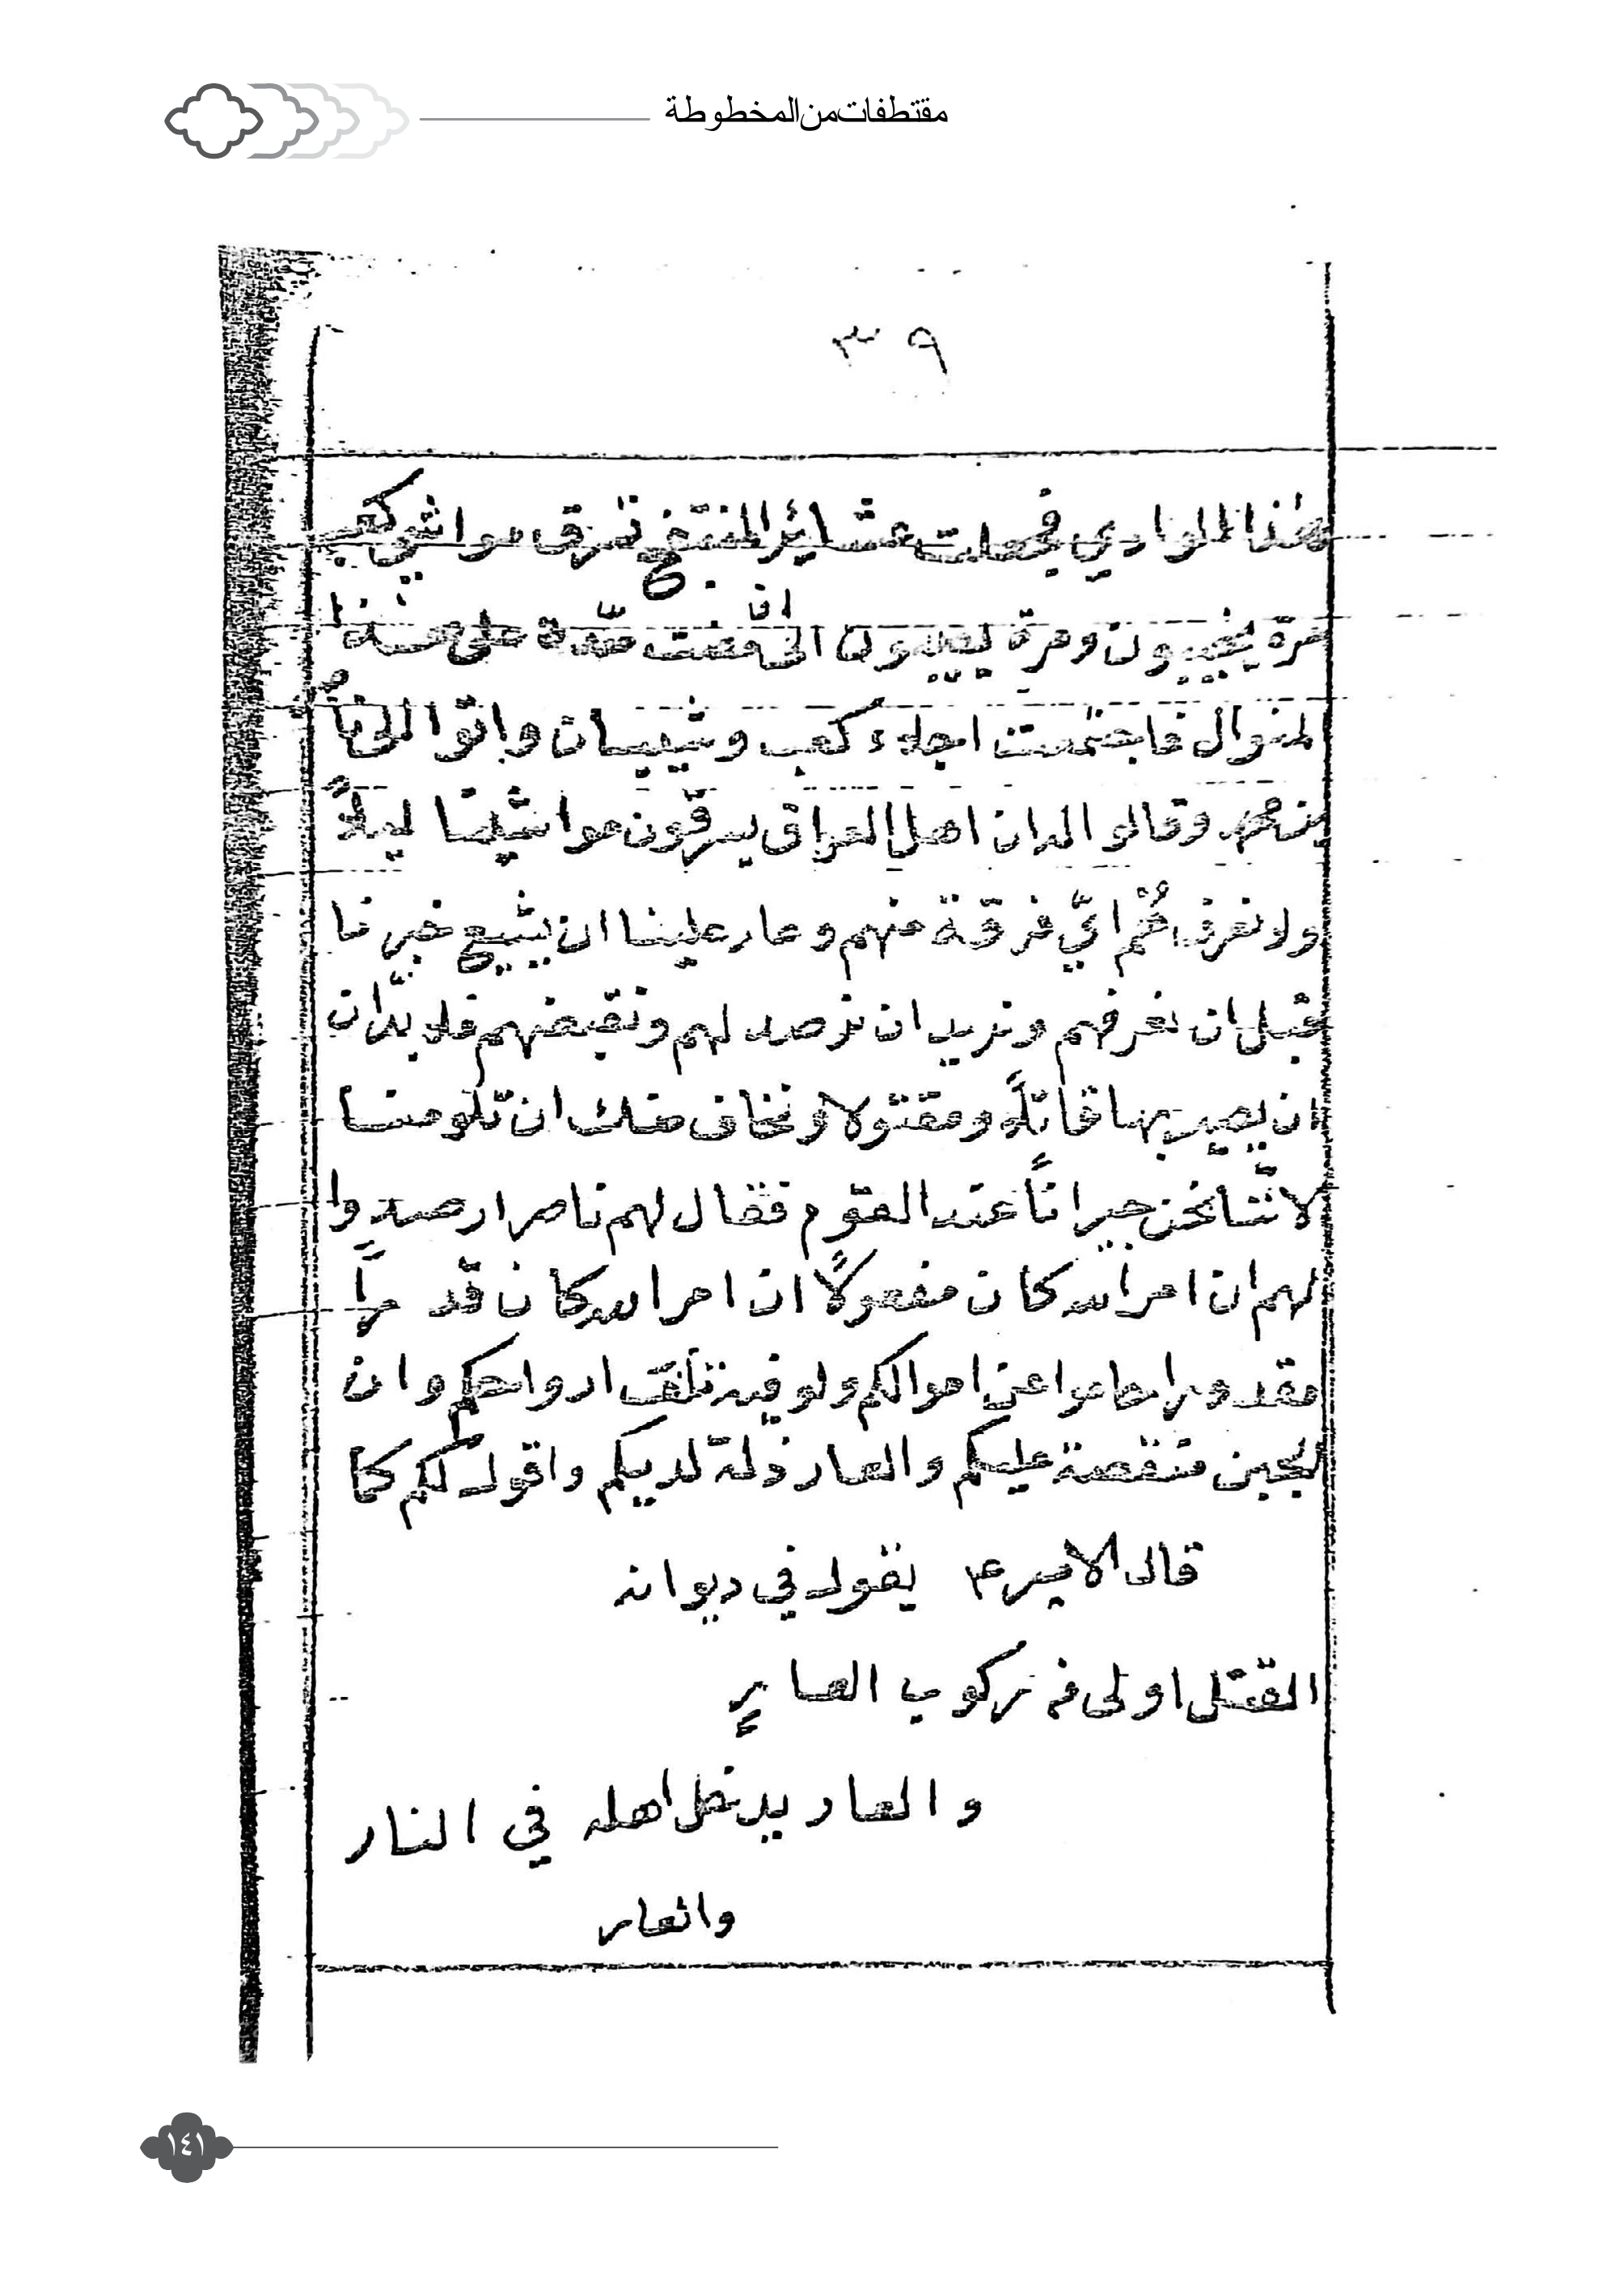 مقتطفات من المخطوطة
٣٩
هذا الوادي فجعلت عشائر المنتفج تسرق مواشي كعب
مرة يخيبون ومرة يصيبون الى ان مضت مدّة على هذا
لمنوال فاجتمعت اجلاء كعب وشيبان واتوا الى ناصر
بن محمد وقالوا له ان اهل العراق يسرقون مواشينا ليلاً
ولا نعرف هُم ايّ فرقة منهم وعار علينا ان يشيع خبرنا
قبل ان نعرفهم ونريد ان نرصد لهم ونقبضهم فلا بدّ ان
ان يصير بها قاتلاً ومقتولا ونخاف منك ان تلومنا
لانّنا نحن جيراناً عند القوم فقال لهم ناصر ارصدوا
لهم ان امر الله كان مفعولاً ان امر الله كان قدراً
مقدورا حاموا عن اموالكم ولو فيه تلفت ارواحكم وان
لجبن منقصة عليكم والعار ذلة لديكم واقول لكم كما
قال الامير ع يقول في ديوانه
القتل اولى من ركوب العارِ
والعار يدخل اهله في النار
والعار
١٤١